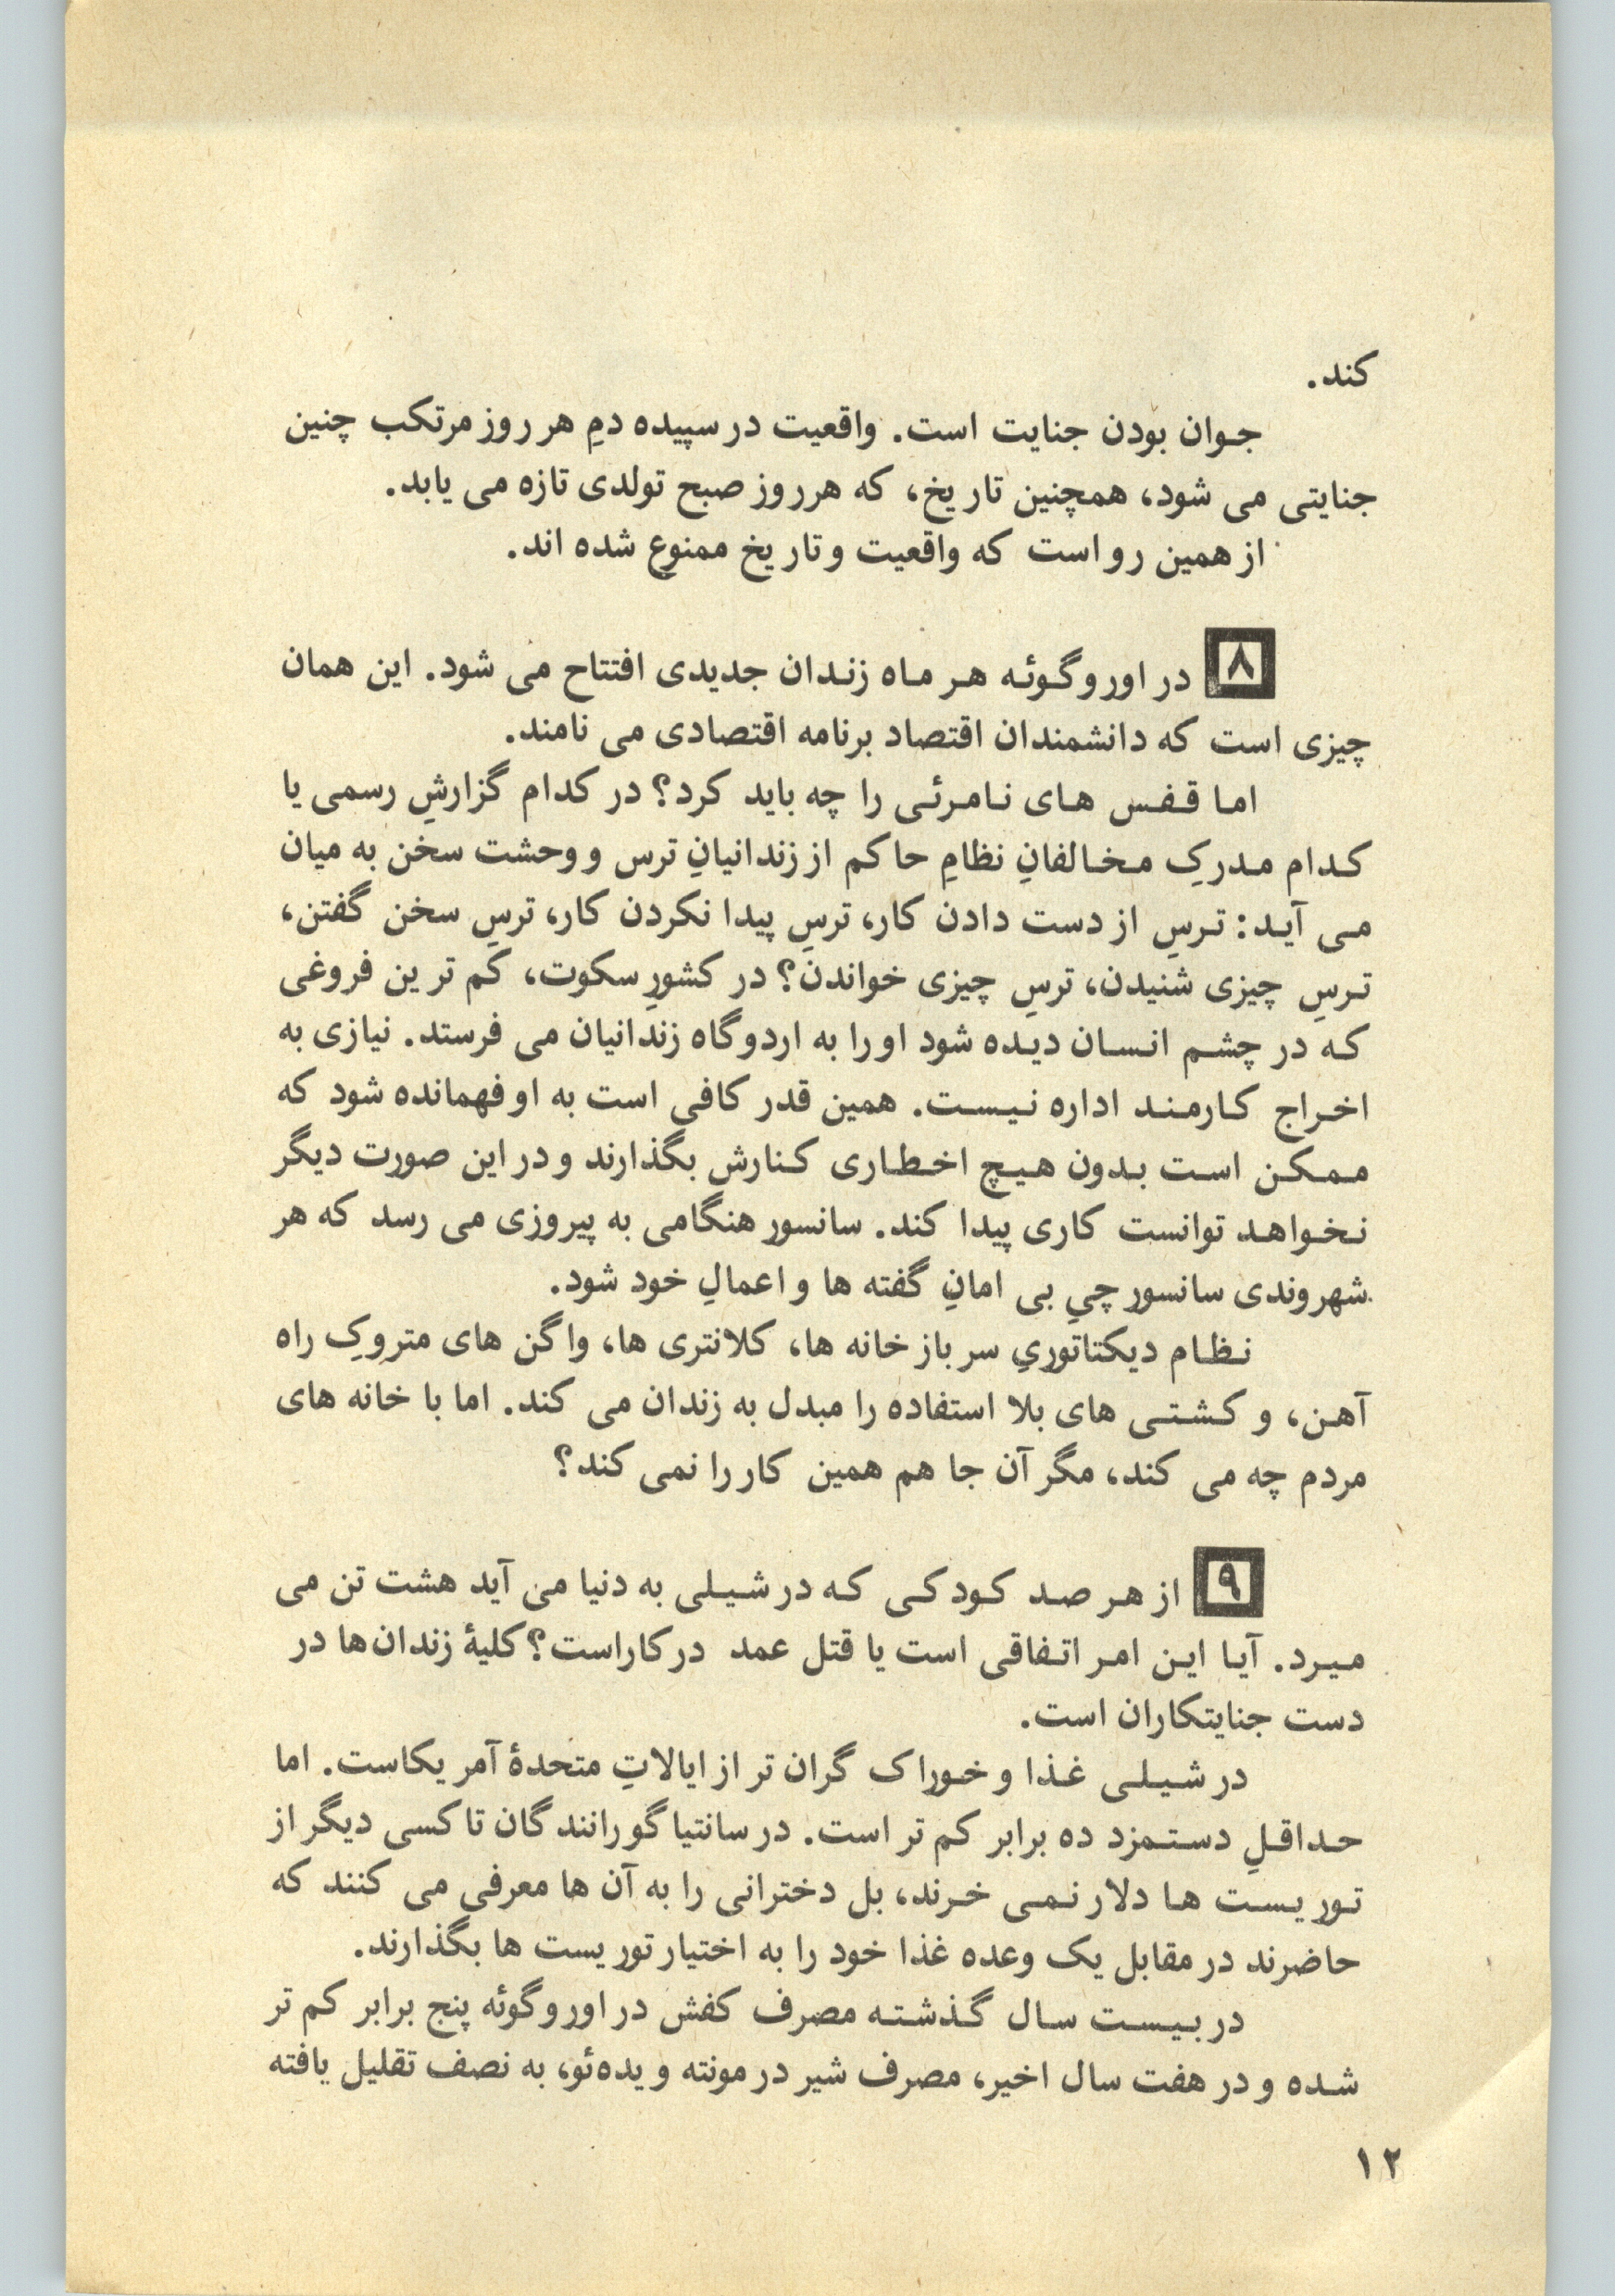 کند.
جوان بودن جنایت است. واقعیت در سپیده دمِ هر روز مرتکب چنین
جنایتی می شود، همچنین تاریخ، که هر روز صبح تولدی تازه می یابد.
از همین رو است که واقعیت و تاریخ ممنوع شده اند.
۸ در اوروگوئه هر ماه زندان جدیدی افتتاح می شود. این همان
چیزی است که دانشمندان اقتصاد برنامه اقتصادی می نامند.
اما قفس های نامرئی را چه باید کرد؟ در کدام گزارشِ رسمی یا
کدام مدرکِ مخالفانِ نظامِ حاکم از زندانیانِ ترس و وحشت سخن به میان
می آید: ترسِ از دست دادن کار، ترسِ پیدا نکردن کار، ترسِ سخن گفتن،
ترسِ چیزی شنیدن، ترسِ چیزی خواندن؟ در کشورِ سکوت، کم ترین فروغی
که در چشم انسان دیده شود او را به اردوگاه زندانیان می فرستد. نیازی به
اخراج کارمند اداره نیست. همین قدر کافی است به او فهمانده شود که
ممکن است بدون هیچ اخطاری کنارش بگذارند و در این صورت دیگر
نخواهد توانست کاری پیدا کند. سانسور هنگامی به پیروزی می رسد که هر
شهروندی سانسورچیِ بی امانِ گفته ها و اعمالِ خود شود.
نظام دیکتاتوریِ سربازخانه ها، کلانتری ها، واگن های متروکِ راه
آهن، و کشتی های بلا استفاده را مبدل به زندان می کند. اما با خانه های
مردم چه می کند، مگر آن جا هم همین کار را نمی کند؟
۹ از هر صد کودکی که در شیلی به دنیا می آید هشت تن می
میرد. آیا این امر اتفاقی است یا قتل عمد در کار است؟ کلیهٔ زندان‌ها در
دست جنایتکاران است.
در شیلی غذا و خوراک گران تر از ایالاتِ متحدهٔ آمریکاست. اما
حداقلِ دستمزد ده برابر کم تر است. در سانتیاگو رانندگان تاکسی دیگر از
توریست ها دلار نمی خرند، بل دخترانی را به آن ها معرفی می کنند که
حاضرند در مقابل یک وعده غذا خود را به اختیار توریست ها بگذارند.
در بیست سال گذشته مصرف کفش در اوروگوئه پنج برابر کم تر
شده و در هفت سال اخیر، مصرف شیر در مونته ویده‌ئو، به نصف تقلیل یافته
۱۲